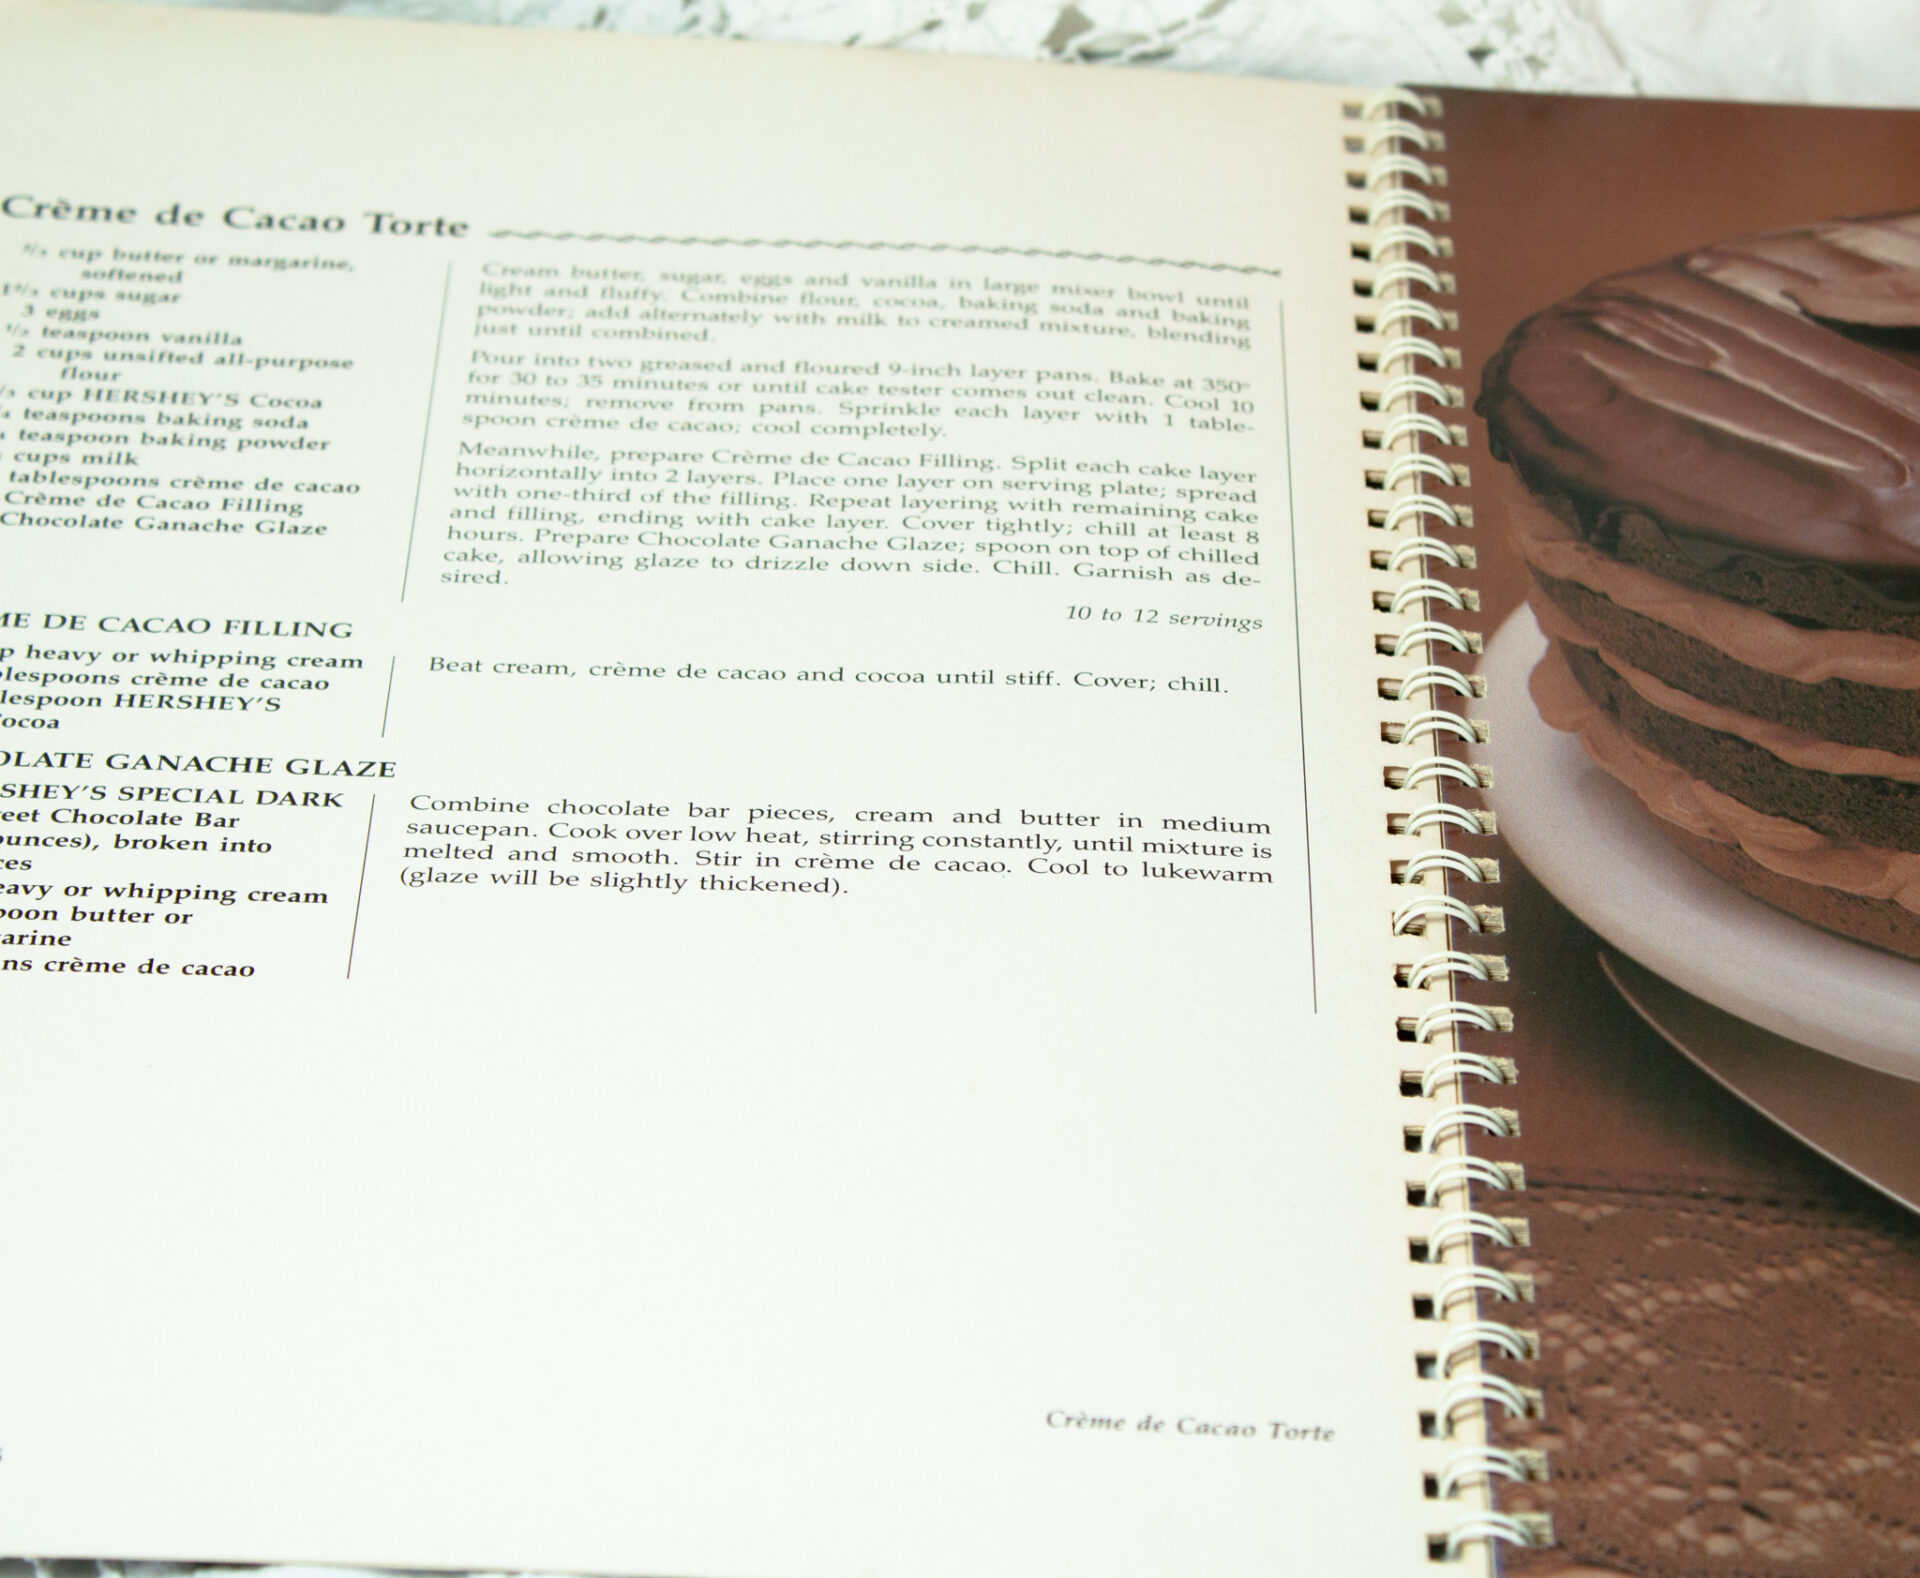 Crème de Cacao Torte
cup butter or margarine,
softened
cups sugar
3 eggs
teaspoon vanilla
2 cups unsifted all-purpose
flour
cup HERSHEY'S Cocoa
teaspoons baking soda
teaspoon baking powder
cups milk
tablespoons crème de cacao
Crème de Cacao Filling
Chocolate Ganache Glaze
Cream butter, sugar, eggs and vanilla in large mixer bowl until
light and fluffy. Combine flour, cocoa, baking soda and baking
powder; add alternately with milk to creamed mixture, blending
just until combined.
Pour into two greased and floured 9-inch layer pans. Bake at 350°
for 30 to 35 minutes or until cake tester comes out clean. Cool 10
minutes; remove from pans. Sprinkle each layer with 1 table-
spoon crème de cacao; cool completely.
Meanwhile, prepare Crème de Cacao Filling. Split each cake layer
horizontally into 2 layers. Place one layer on serving plate; spread
with one-third of the filling. Repeat layering with remaining cake
and filling, ending with cake layer. Cover tightly; chill at least 8
hours. Prepare Chocolate Ganache Glaze; spoon on top of chilled
cake, allowing glaze to drizzle down side. Chill. Garnish as de-
sired.
10 to 12 servings
ME DE CACAO FILLING
p heavy or whipping cream
lespoons crème de cacao
lespoon HERSHEY'S
ocoa
Beat cream, crème de cacao and cocoa until stiff. Cover; chill.
OLATE GANACHE GLAZE
SHEY'S SPECIAL DARK
eet Chocolate Bar
ounces), broken into
ces
eavy or whipping cream
poon butter or
arine
ns crème de cacao
Combine chocolate bar pieces, cream and butter in medium
saucepan. Cook over low heat, stirring constantly, until mixture is
melted and smooth. Stir in crème de cacao. Cool to lukewarm
(glaze will be slightly thickened).
Crème de Cacao Torte